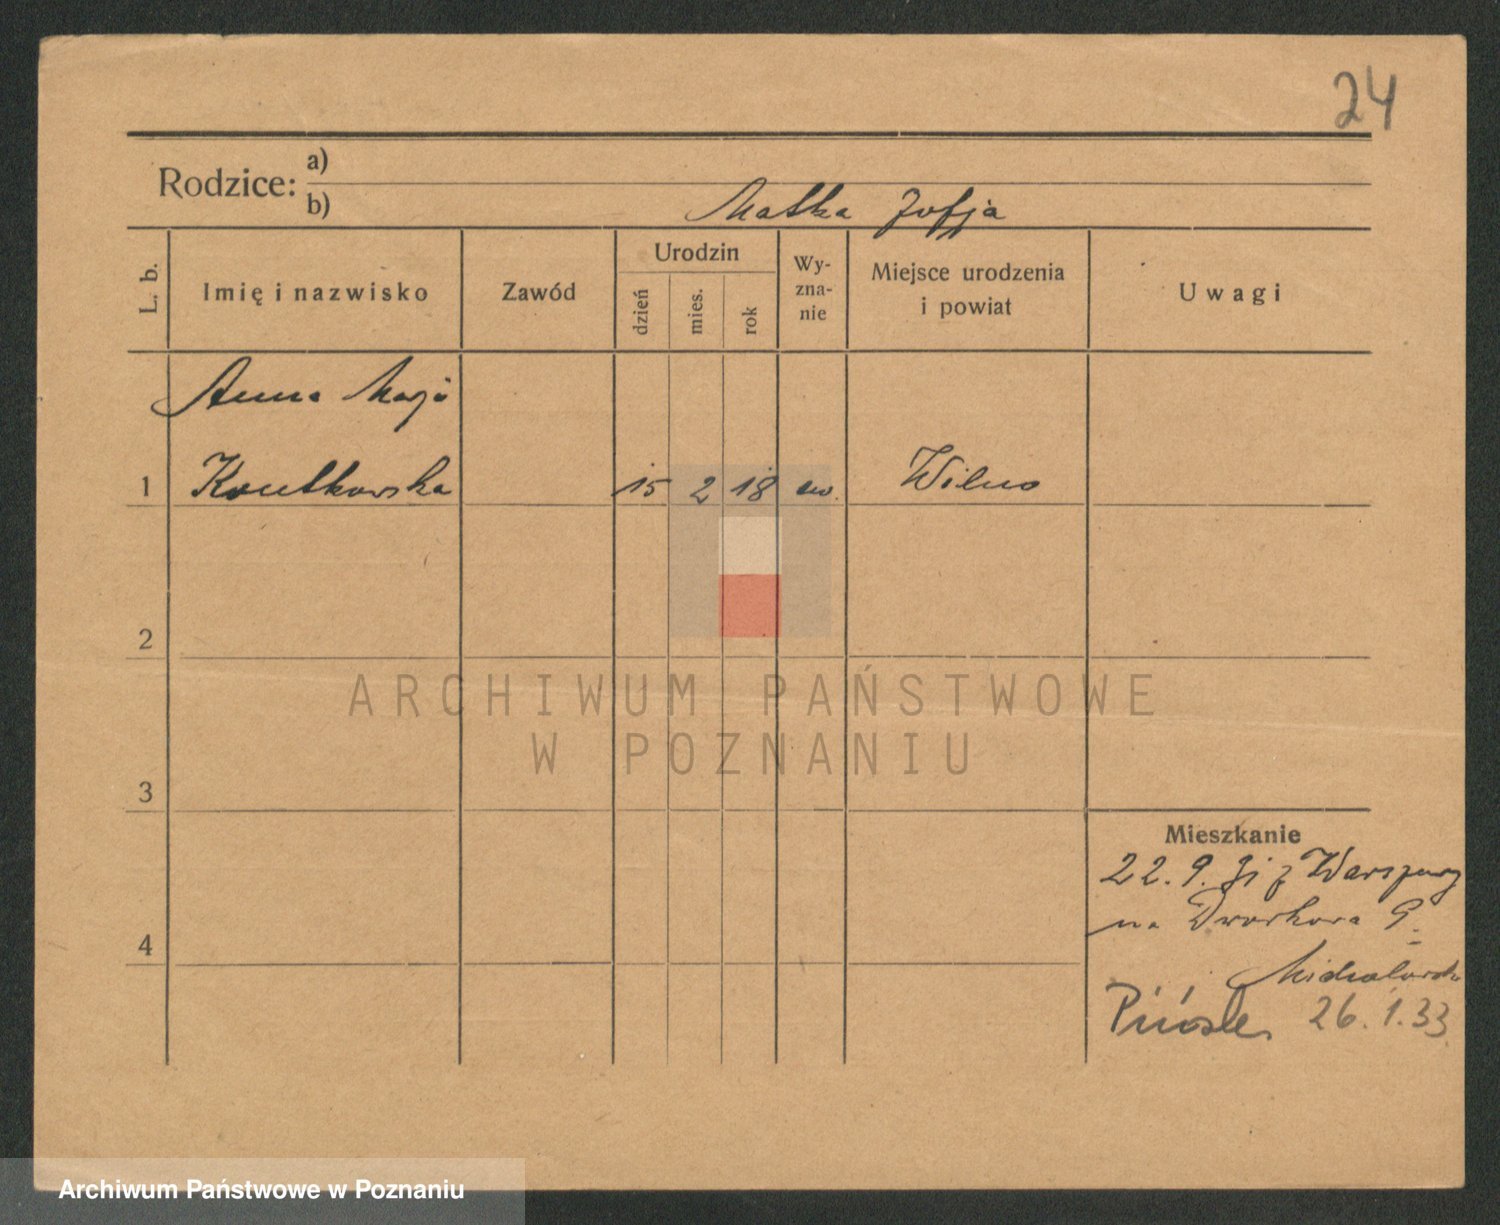 24
Rodzice: a)
b) Matka Zofja
L. b. Imię i nazwisko Zawód Urodzin dzień mies. rok Wy-zna-nie Miejsce urodzenia i powiat Uwagi
Anna Marja
1 15 2 18 Wilno
2
3
4
Mieszkanie
22. 9. z Warszawy
na Dworkowa 9.
26.1.33
ARCHIWUM PAŃSTWOWE
W POZNANIU
Archiwum Państwowe w Poznaniu